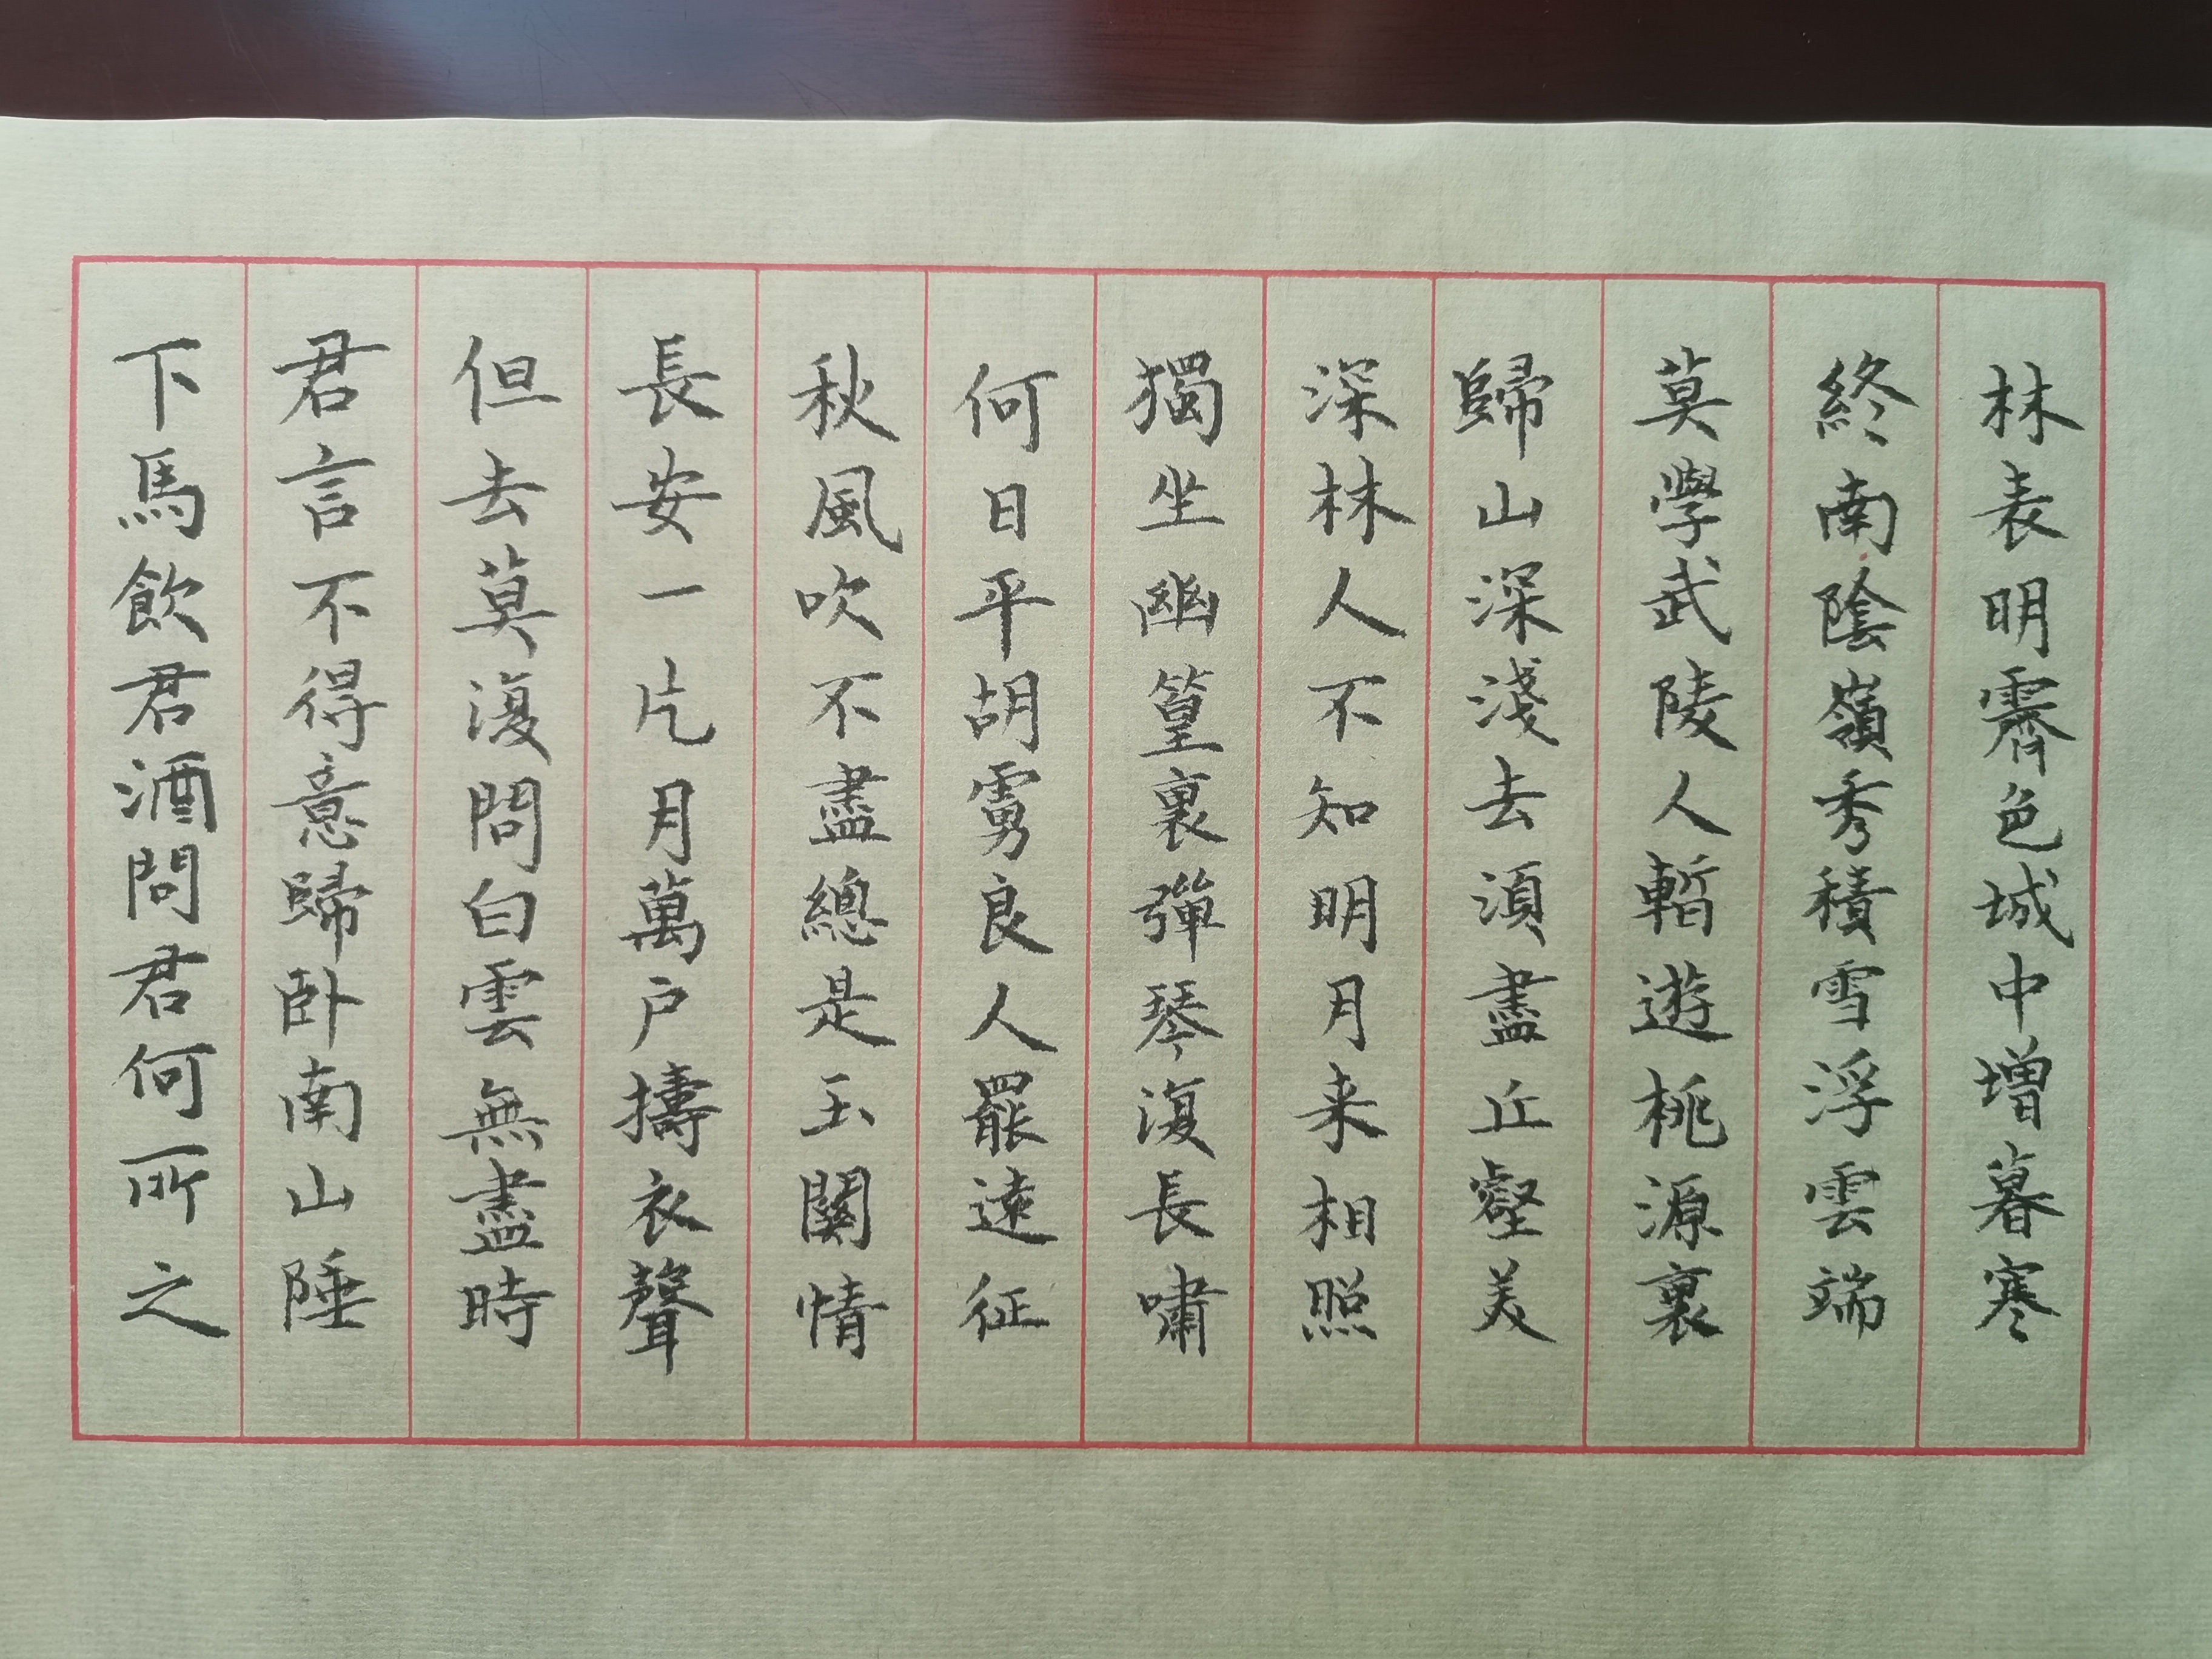 下馬飲君酒問君何所之
君言不得意歸卧南山陲
但去莫復問白雲無盡時
長安一片月萬户擣衣聲
秋風吹不盡總是玉關情
何日平胡虜良人罷遠征
獨坐幽篁裏彈琴復長嘯
深林人不知明月来相照
歸山深淺去湏盡丘壑美
莫學武陵人暫遊桃源裏
終南陰嶺秀積雪浮雲端
林表明霽色城中增暮寒